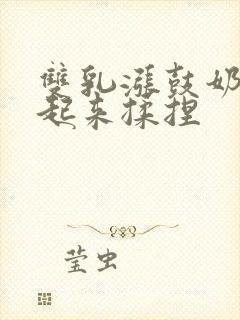 雙乳漲鼓奶
起来揉捏
莹虫